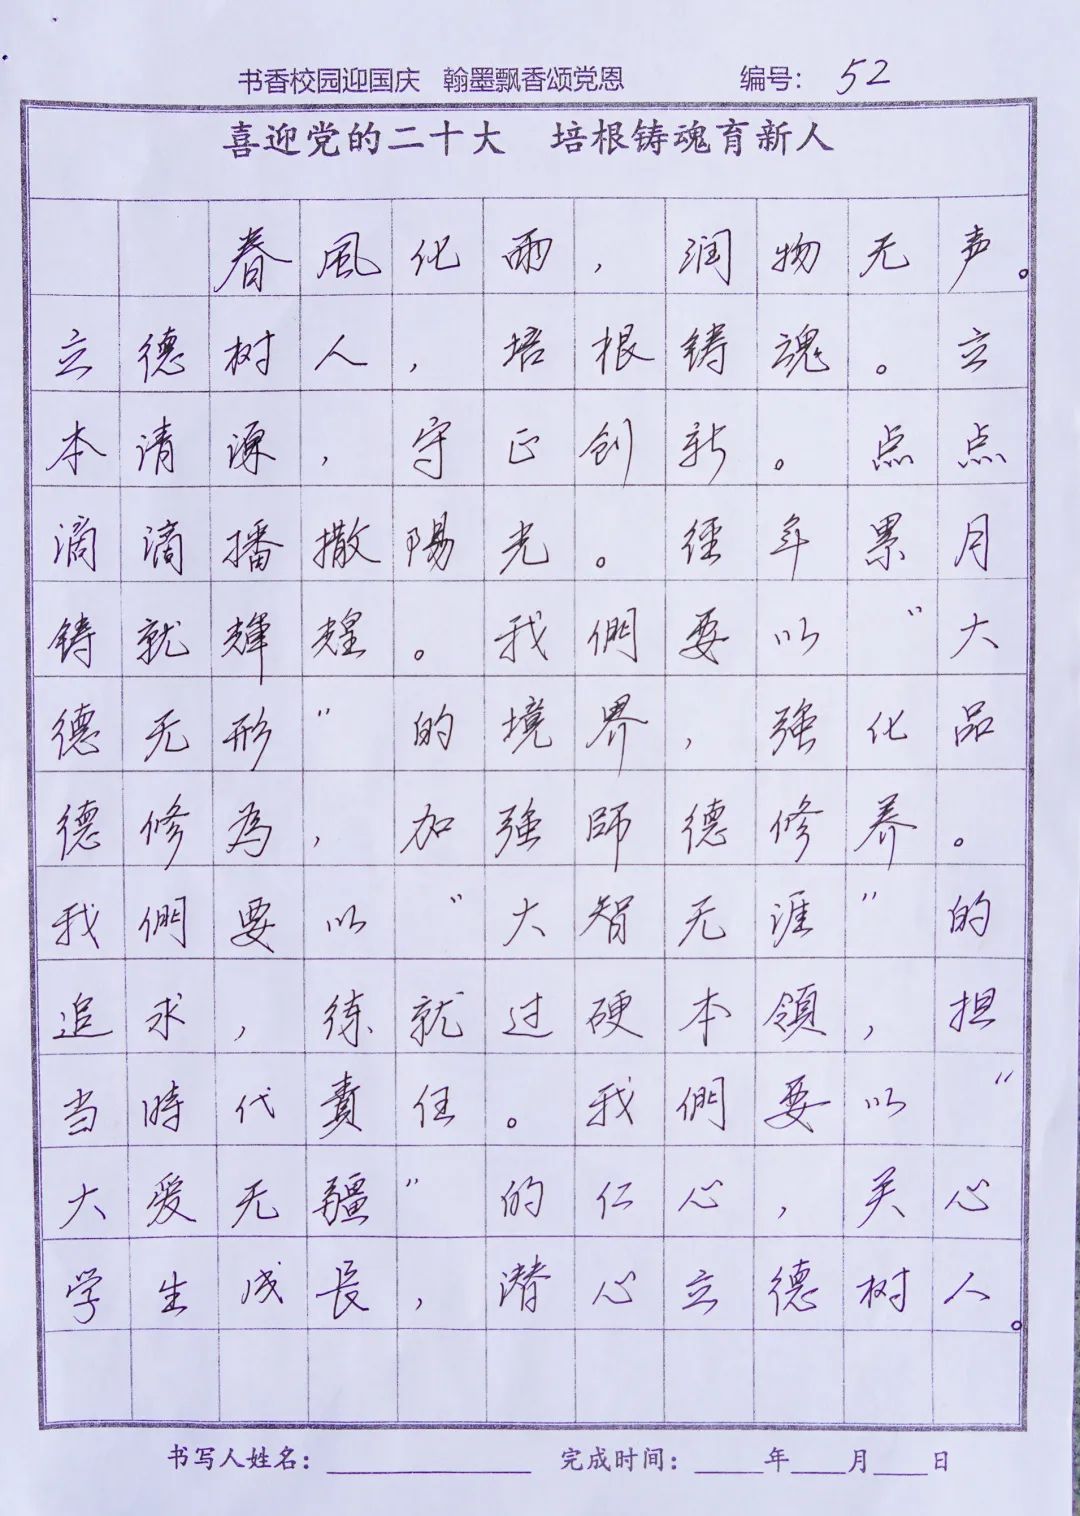 书香校园迎国庆 翰墨飘香颂党恩 编号：52
喜迎党的二十大 培根铸魂育新人
春風化雨，润物无声。
立德树人，培根铸魂。立
本清源，守正创新。点点
滴滴播撒陽光。经年累月
铸就辉煌。我們要以“大
德无形”的境界，強化品
德修為，加強師德修养。
我們要以“大智无涯”的
追求，练就过硬本領，担
当時代責任。我們要以“
大爱无疆”的仁心，关心
学生成長，潜心立德树人。
书写人姓名：__________ 完成时间：____年___月___日